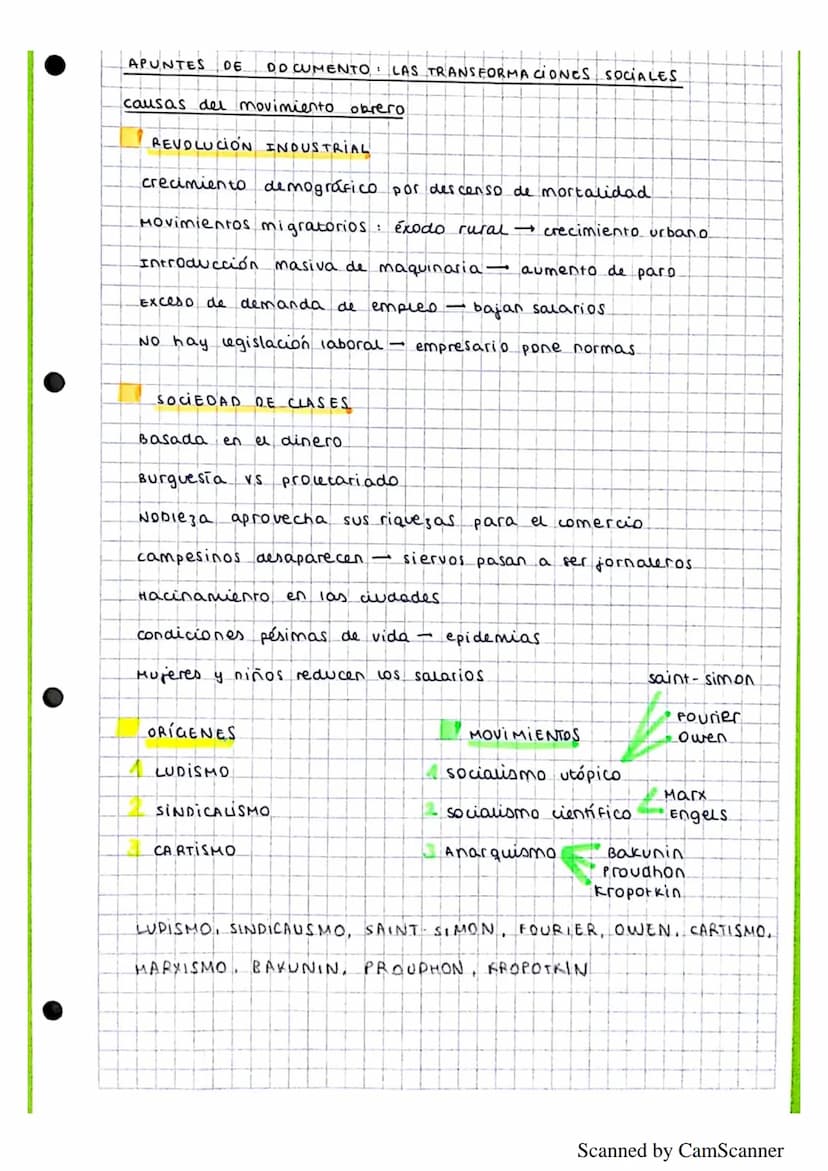 APUNTES DE DOCUMENTO: LAS TRANSFORMACIONES SOCIALES
causas del movimiento obrero
REVOLUCIÓN INDUSTRIAL
crecimiento demográfico por descenso de mortalidad
Movimientos migratorios: éxodo rural → crecimiento urbano
Introducción masiva de maquinaria → aumento de paro
Exceso de demanda de empleo → bajan salarios
No hay legislación laboral → empresario pone normas
SOCIEDAD DE CLASES
Basada en el dinero
Burguesía vs proletariado
Nobleza aprovecha sus riquezas para el comercio
campesinos desaparecen → siervos pasan a ser jornaleros
Hacinamiento en las ciudades
condiciones pésimas de vida → epidemias
Mujeres y niños reducen los salarios
saint-simon
Fourier
Owen
ORÍGENES
1 LUDISMO
2 SINDICALISMO
3 CARTISMO
MOVIMIENTOS
1 socialismo utópico
2 socialismo científico
Marx
Engels
3 Anarquismo
Bakunin
Proudhon
Kropotkin
LUDISMO, SINDICALISMO, SAINT-SIMON, FOURIER, OWEN, CARTISMO,
MARXISMO, BAKUNIN, PROUDHON, KROPOTKIN
Scanned by CamScanner